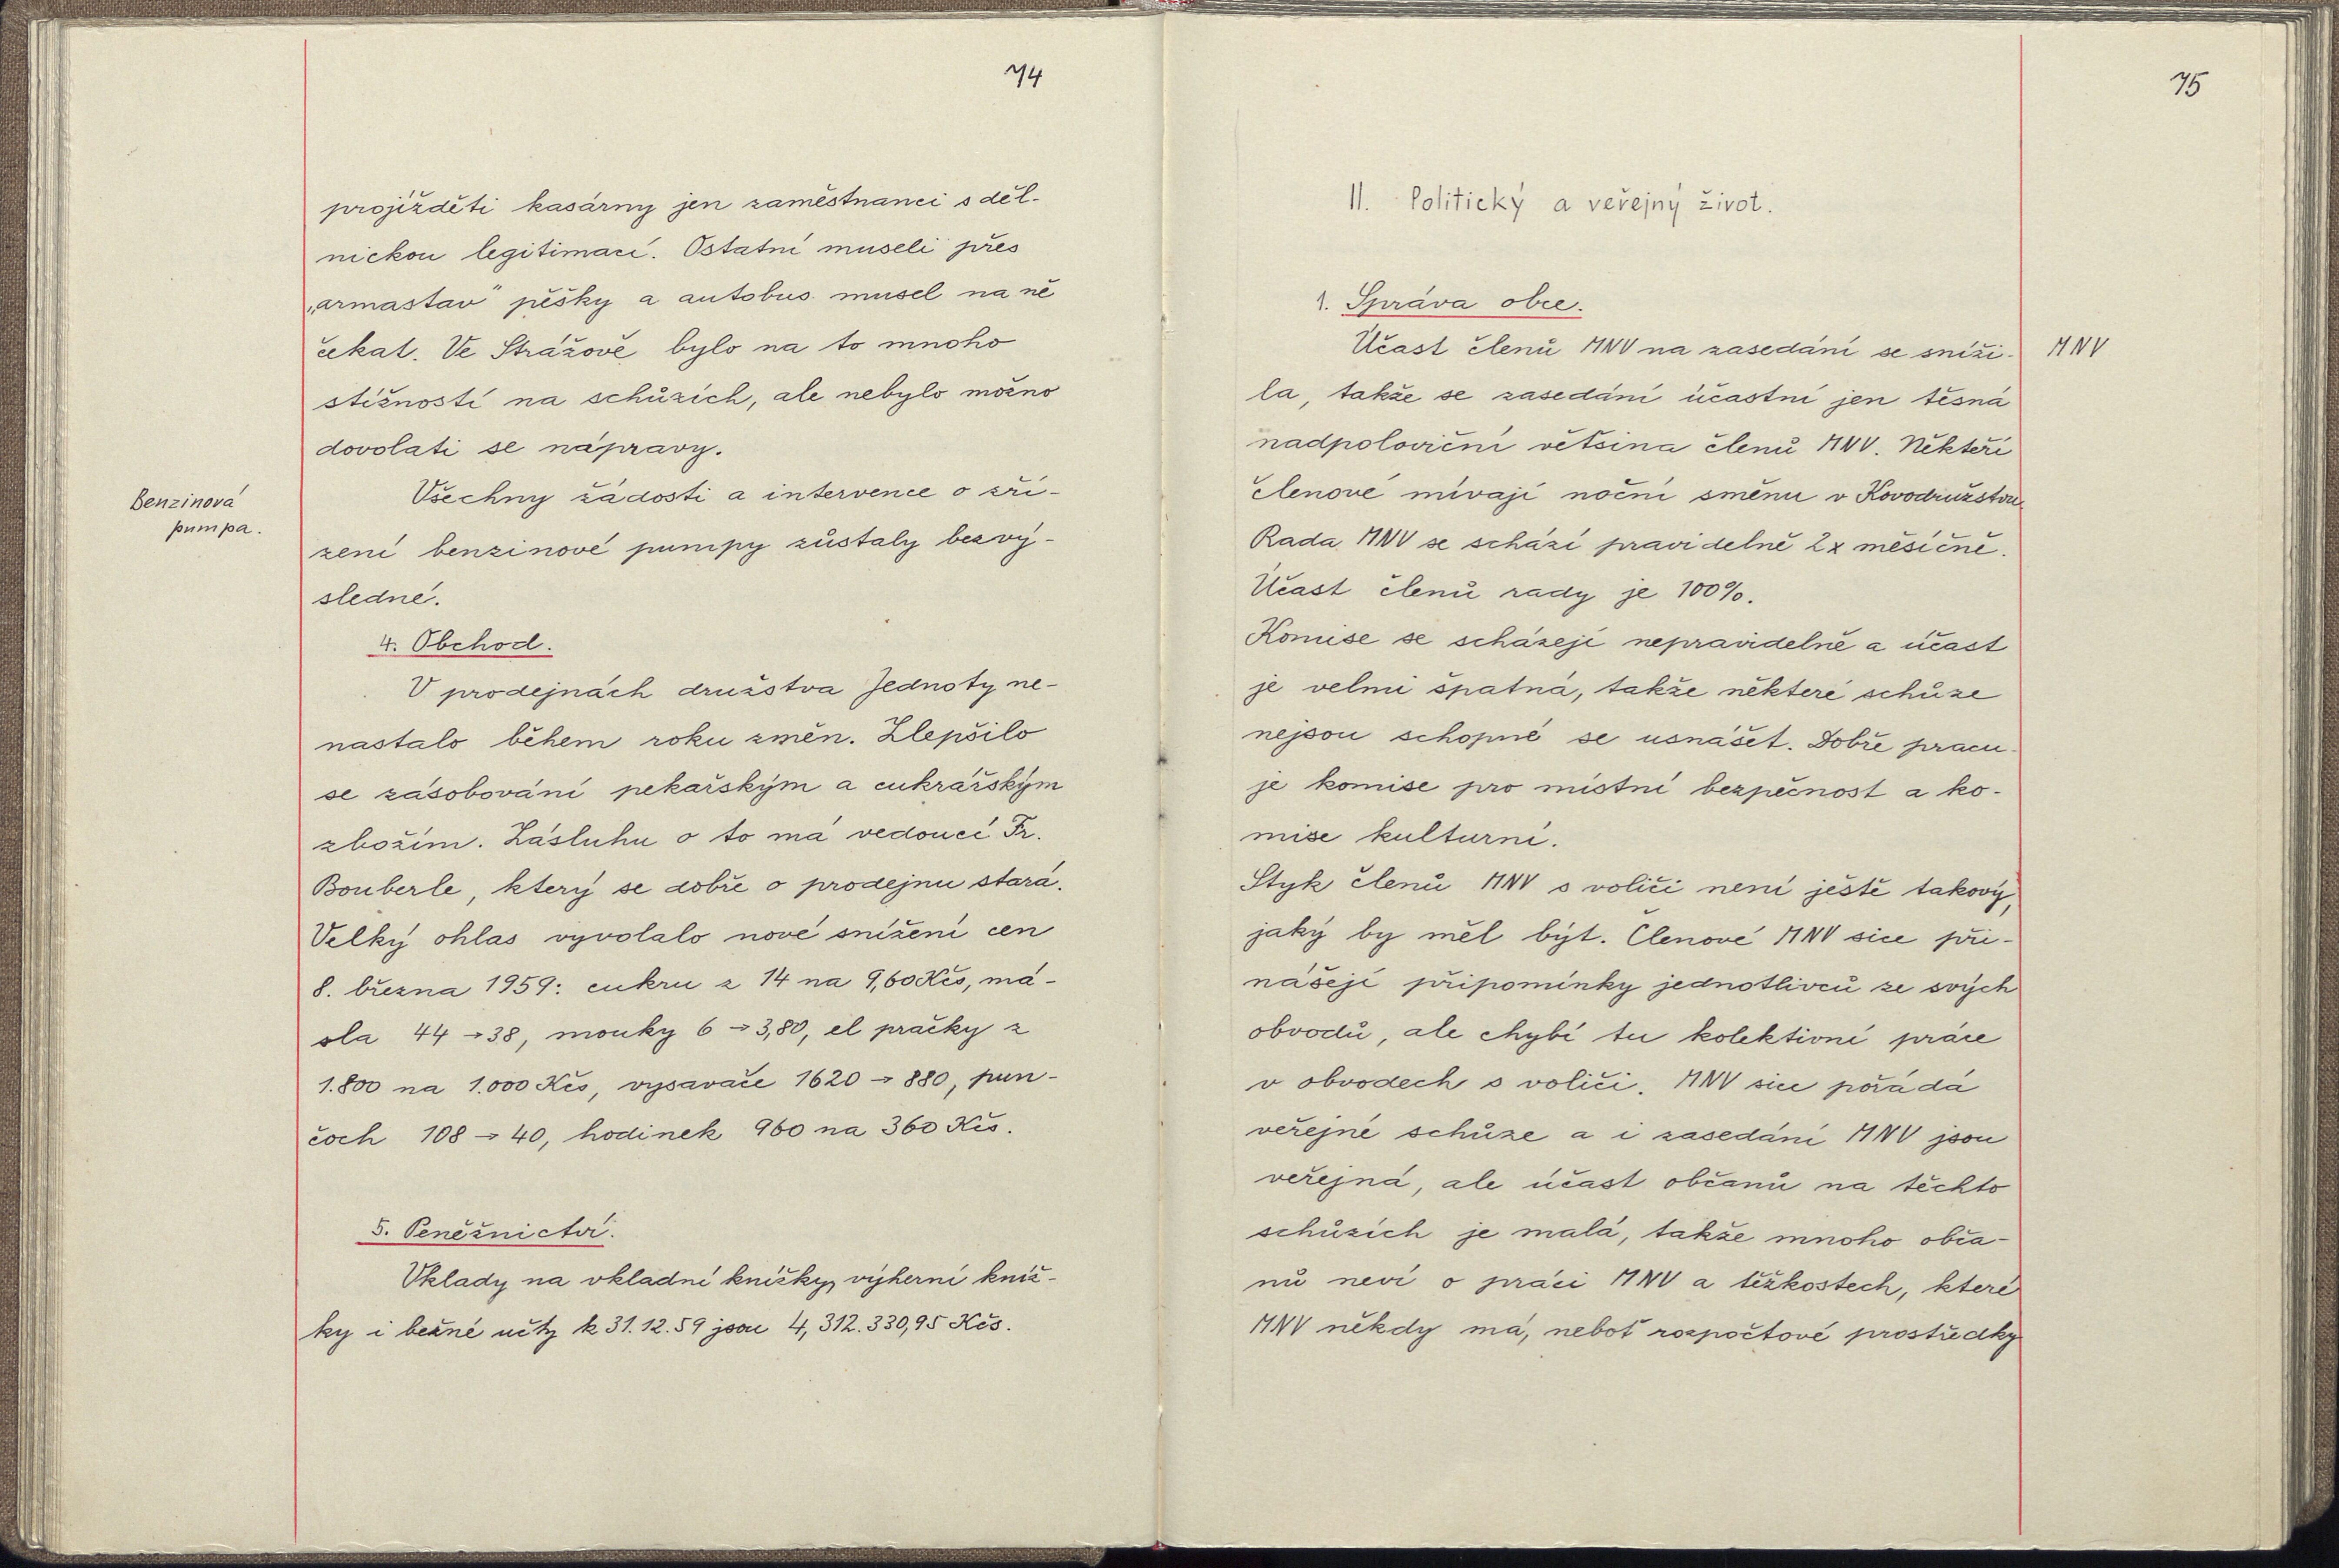 74
projížděti kasárny jen zaměstnanci s děl-
nickou legitimací. Ostatní museli přes
„armastav" pěšky a autobus musel na ně
čekat. Ve Strážově bylo na to mnoho
stížností na schůzích, ale nebylo možno
dovolati se nápravy.
Benzinová
pumpa.
Všechny žádosti a intervence o zří-
zení benzinové pumpy zůstaly bezvý-
sledné.
4. Obchod.
V prodejnách družstva Jednoty ne-
nastalo během roku změn. Zlepšilo
se zásobování pekařským a cukrářským
zbožím. Zásluhu o to má vedoucí Fr.
Bouberle, který se dobře o prodejnu stará.
Velký ohlas vyvolalo nové snížení cen
8. března 1959: cukru z 14 na 9,60 Kčs, má-
sla 44 → 38, mouky 6 → 3,80, el pračky z
1.800 na 1.000 Kčs, vysavače 1620 → 880, pun-
čoch 108 → 40, hodinek 960 na 360 Kčs.
5. Peněžnictví.
Vklady na vkladní knížky, výherní kníž-
ky i bežné učty k 31.12.59 jsou 4,312.330,95 Kčs.
75
II. Politický a veřejný život.
1. Správa obce.
MNV
Účast členů MNV na zasedání se sníži-
la, takže se zasedání účastní jen těsná
nadpoloviční většina členů MNV. Někteří
členové mívají noční směnu v Kovodružstvu.
Rada MNV se schází pravidelně 2x měsíčně.
Účast členů rady je 100%.
Komise se scházejí nepravidelně a účast
je velmi špatná, takže některé schůze
nejsou schopné se usnášet. Dobře pracu-
je komise pro místní bezpečnost a ko-
mise kulturní.
Styk členů MNV s voliči není ještě takový,
jaký by měl být. Členové MNV sice při-
nášejí připomínky jednotlivců ze svých
obvodů, ale chybí tu kolektivní práce
v obvodech s voliči. MNV sice pořádá
veřejné schůze a i zasedání MNV jsou
veřejná, ale účast občanů na těchto
schůzích je malá, takže mnoho obča-
nů neví o práci MNV a těžkostech, které
MNV někdy má, neboť rozpočtové prostředky